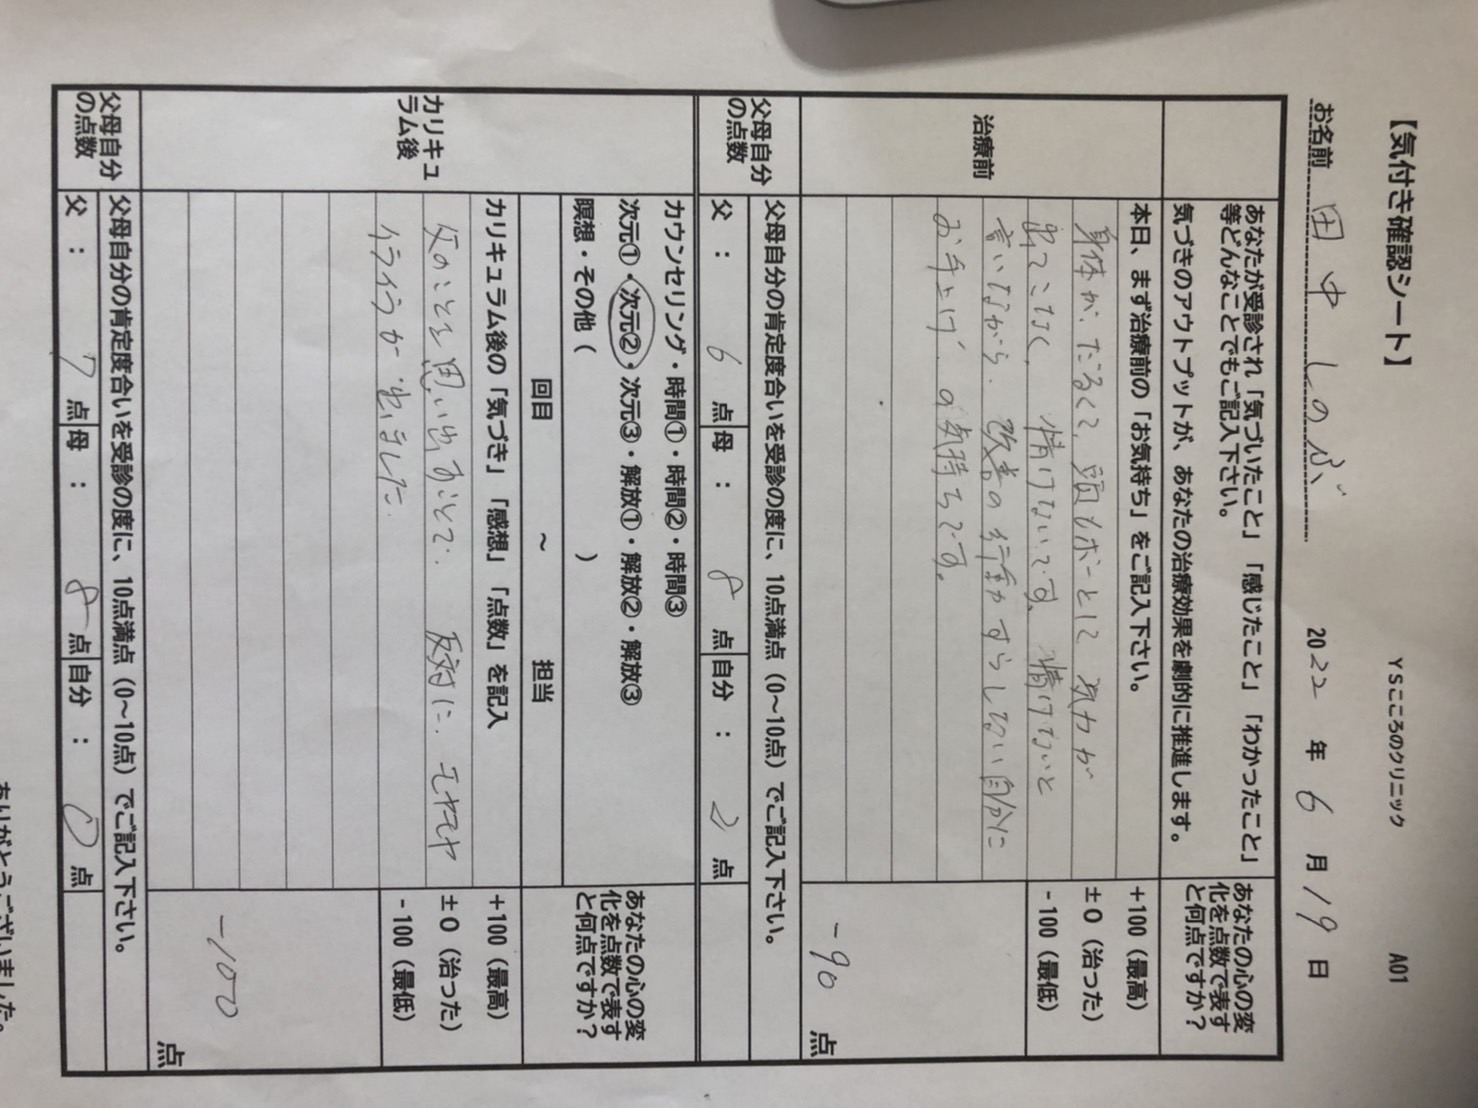 【気付き確認シート】
YSこころのクリニック A01
お名前 田中しのぶ 2022年6月19日
あなたが受診され「気づいたこと」「感じたこと」「わかったこと」
等どんなことでもご記入下さい。
気づきのアウトプットが、あなたの治療効果を劇的に推進します。
あなたの心の変
化を点数で表す
と何点ですか？
治療前
本日、まず治療前の「お気持ち」をご記入下さい。
+100（最高）
±0（治った）
-100（最低）
身体が、だるくて、頭もボーとして 気力が
出てこなく、情けないです。情けないと
言いながら、改善の行動すらしない自分に
お手上げ の気持ちです。
-90 点
父母自分
の点数
父母自分の肯定度合いを受診の度に、10点満点（0～10点）でご記入下さい。
父： 6 点 母： 8 点 自分： 2 点
カリキュ
ラム後
カウンセリング・時間①・時間②・時間③
次元①・次元②・次元③・解放①・解放②・解放③
瞑想・その他（ ）
あなたの心の変
化を点数で表す
と何点ですか？
回目 ～ 担当
カリキュラム後の「気づき」「感想」「点数」を記入
+100（最高）
±0（治った）
-100（最低）
父のことを思い出すことで、反対に、モヤモヤ
イライラが出ました。
-100 点
父母自分
の点数
父母自分の肯定度合いを受診の度に、10点満点（0～10点）でご記入下さい。
父： 7 点 母： 8 点 自分： 0 点
ありがとうございました。